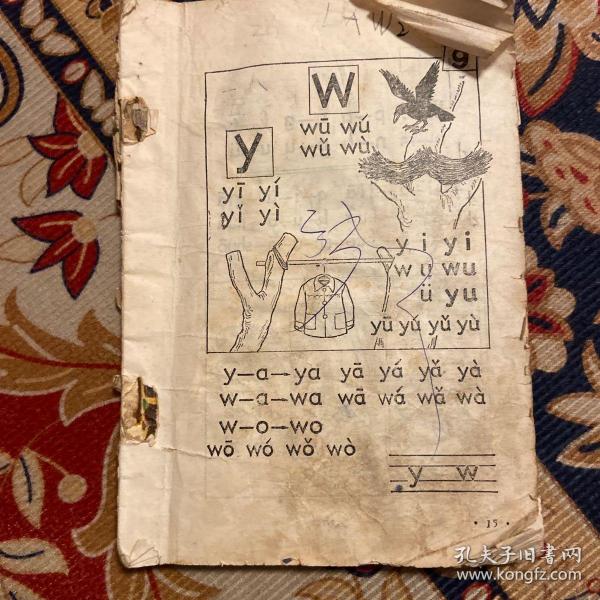 LAW
9
w
wū wú
wǔ wù
y
yī yí
yǐ yì
y i yi
w u wu
ü yu
yū yú yǔ yù
y—a→ya yā yá yǎ yà
w—a→wa wā wá wǎ wà
w—o→wo
wō wó wǒ wò
y w
·15·
孔夫子旧书网
www.kongfz.com